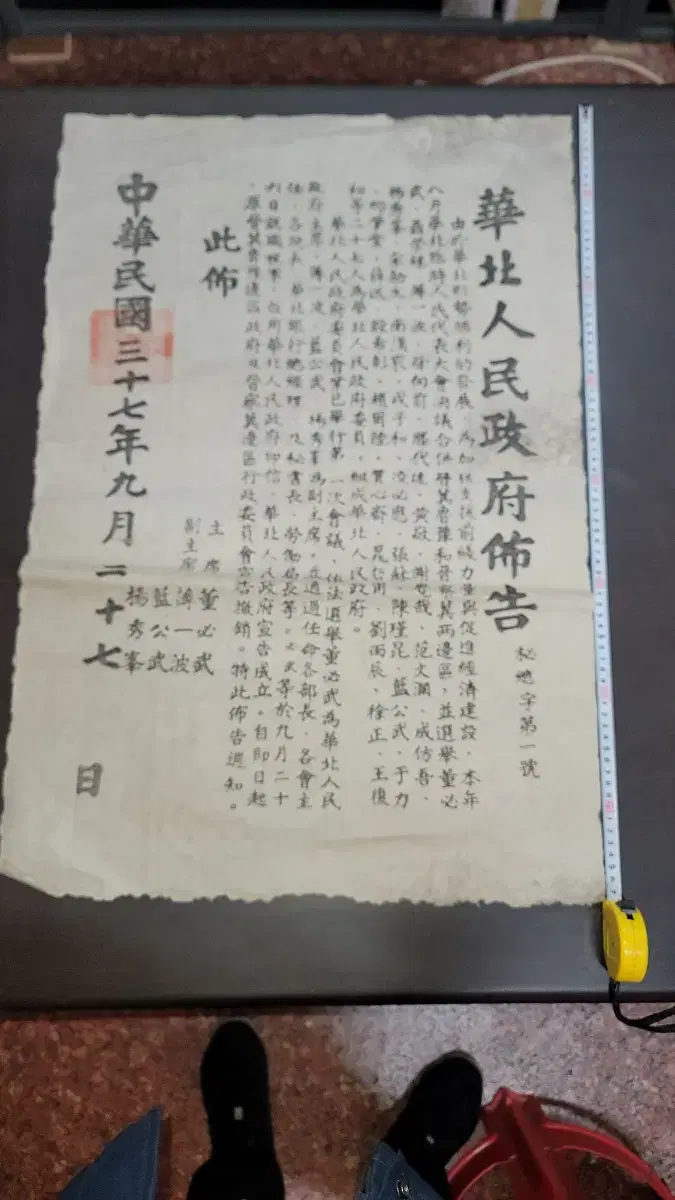 華北人民政府佈告
秘總字第一號
由於華北形勢勝利的發展,為加強支援前綫力量與促進經濟建設,本年
八月華北臨時人民代表大會決議合併晉冀魯豫和晉察冀兩邊區,並選舉董必
武、聶榮臻、薄一波、徐向前、滕代遠、黃敬、謝覺哉、范文瀾、成仿吾、
楊秀峯、宋劭文、南漢宸、戎子和、凌必應、張蘇、陳瑾昆、藍公武、于力
、邢肇棠、殷希彭、賈心齋、晁哲甫、劉雨辰、徐正、王復
初等二十七人為華北人民政府委員,組成華北人民政府。
華北人民政府委員會業已舉行第一次會議,依法選舉董必武為華北人民
政府主席,薄一波、藍公武、楊秀峯為副主席。並通過任命各部長、各會主
任、各院長、華北銀行總經理、及秘書長、勞働局長等。必武等於九月二十
日就職視事,啟用華北人民政府印信,華北人民政府宣告成立。自即日起
,原晉冀魯豫邊區政府及晉察冀邊區行政委員會宣告撤銷。特此佈告週知。
此佈
主席 董必武
副主席 薄一波
藍公武
楊秀峯
中華民國三十七年九月二十七日